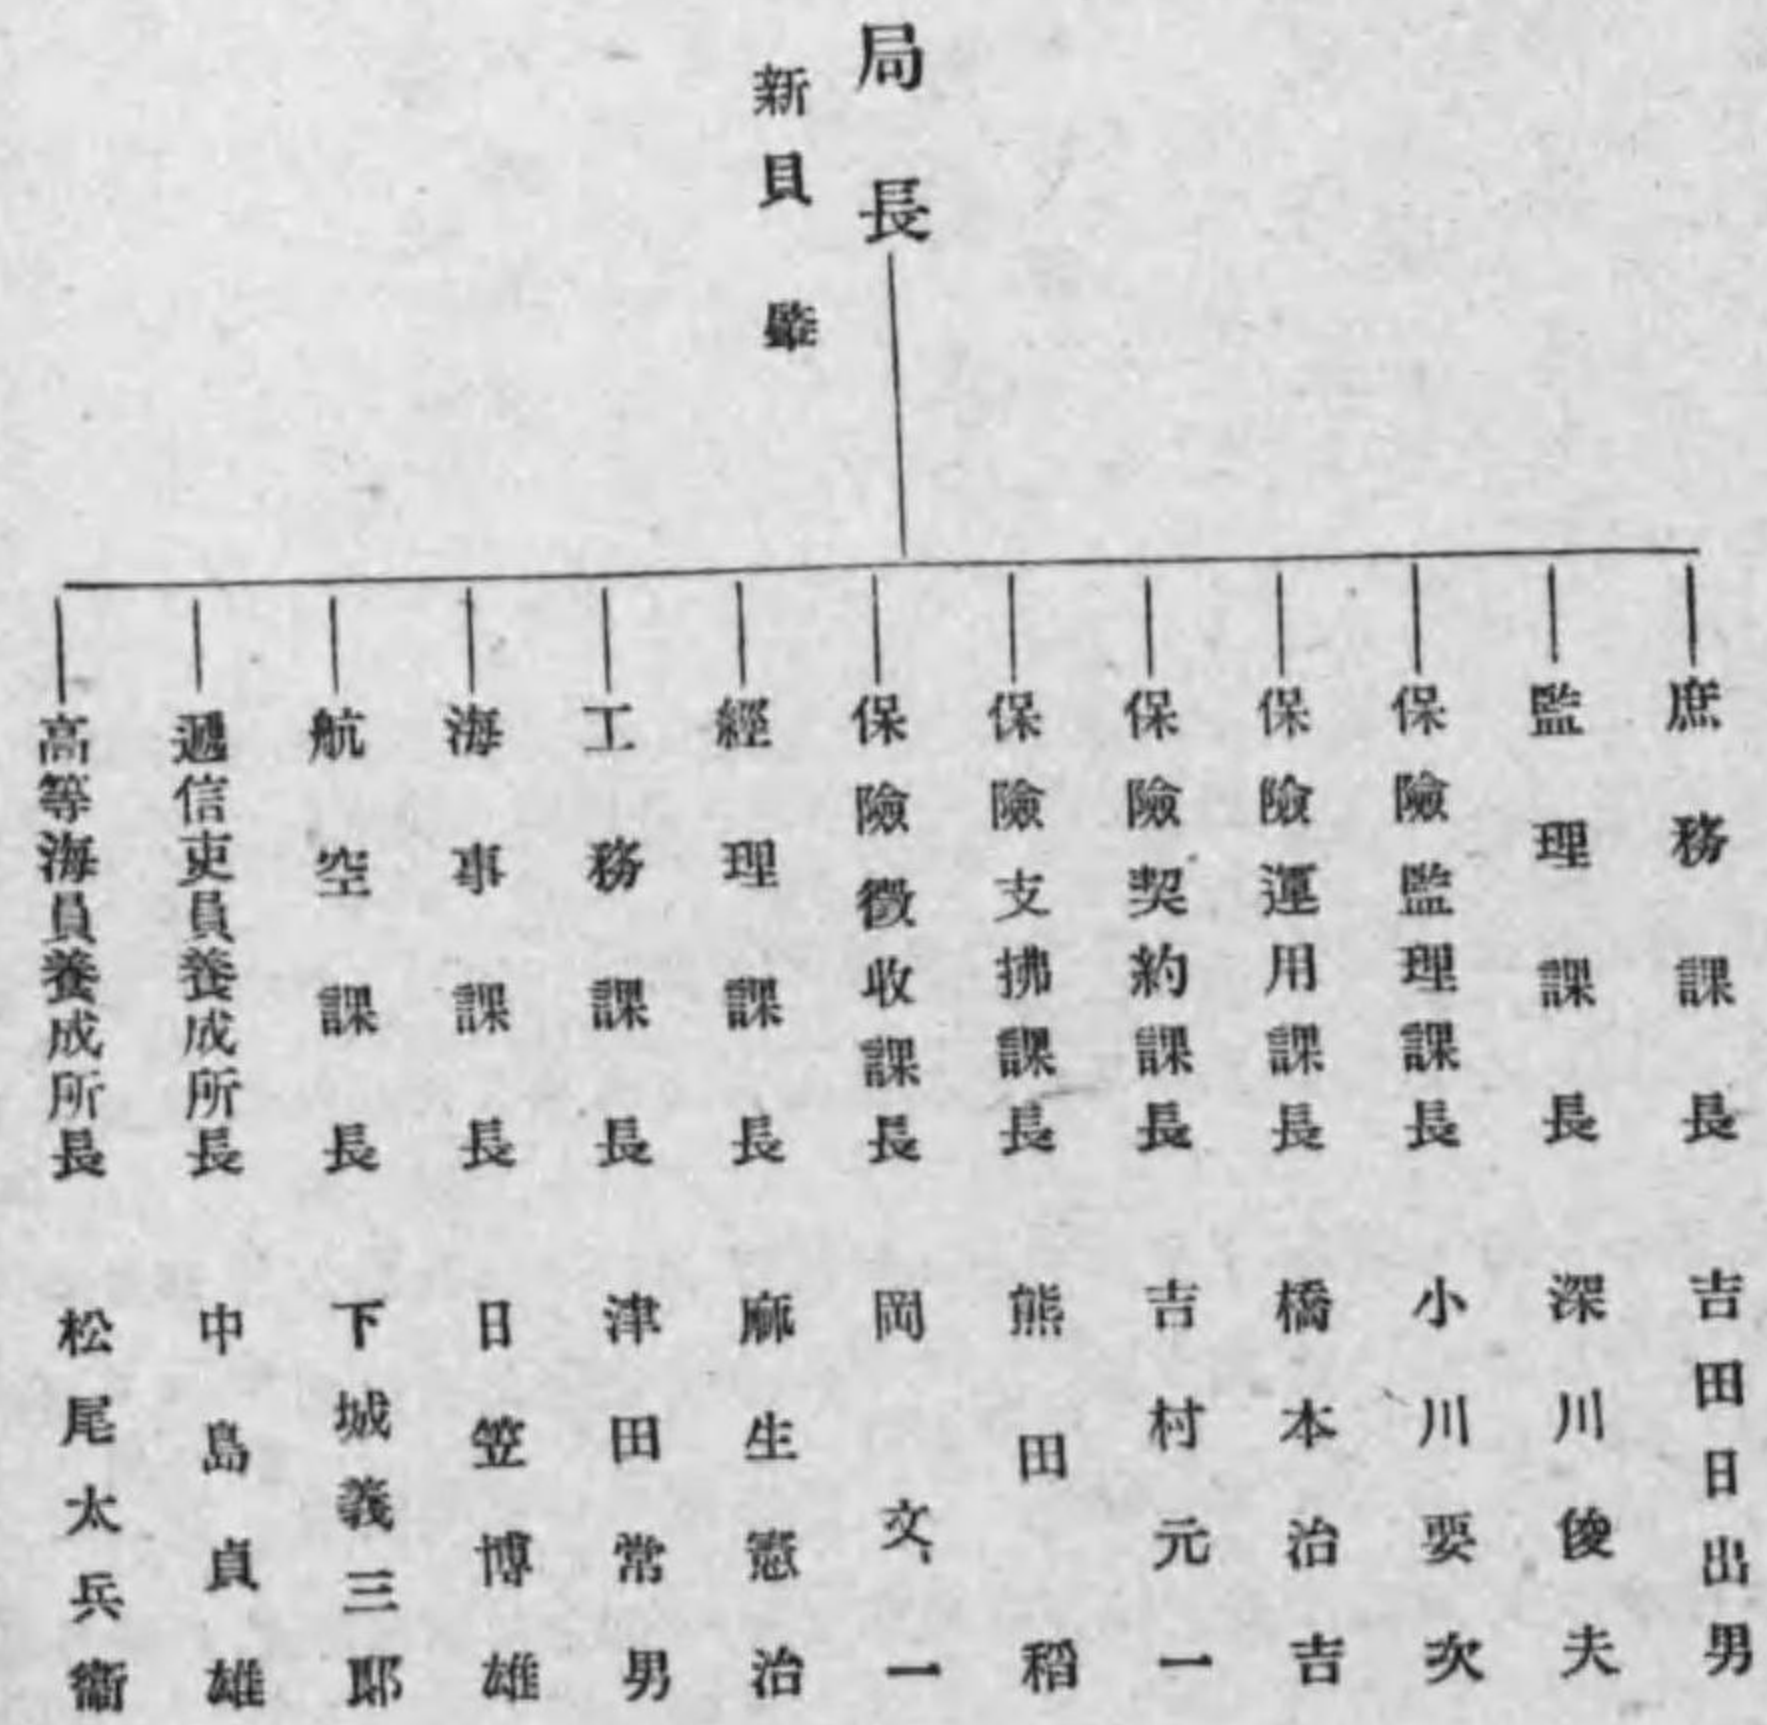 局長
新貝肇
庶務課長 吉田日出男
監理課長 深川俊夫
保險監理課長 小川要次
保險運用課長 橋本治吉
保險契約課長 吉村元一
保險支拂課長 熊田稻
保險徵收課長 岡文一
經理課長 麻生憲治
工務課長 津田常男
海事課長 日笠博雄
航空課長 下城義三郎
遞信吏員養成所長 中島貞雄
高等海員養成所長 松尾太兵衞